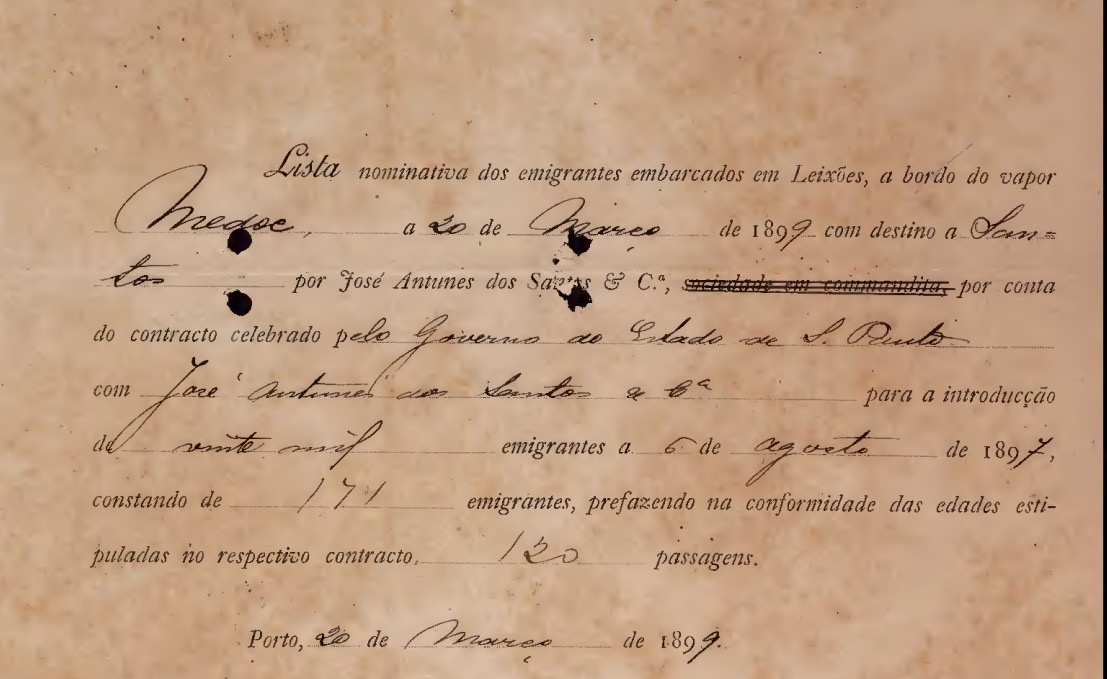 Lista nominativa dos emigrantes embarcados em Leixões, a bordo do vapor
Medoc, a 20 de Março de 1899 com destino a San=
tos por José Antunes dos Santos & C.ª, sociedade em commandita, por conta
do contracto celebrado pelo Governo do Estado de S. Paulo
com José Antunes dos Santos & Cª para a introducção
de vinte mil emigrantes a 6 de agosto de 1897,
constando de 171 emigrantes, prefazendo na conformidade das edades esti-
puladas no respectivo contracto, 120 passagens.
Porto, 20 de Março de 1899.